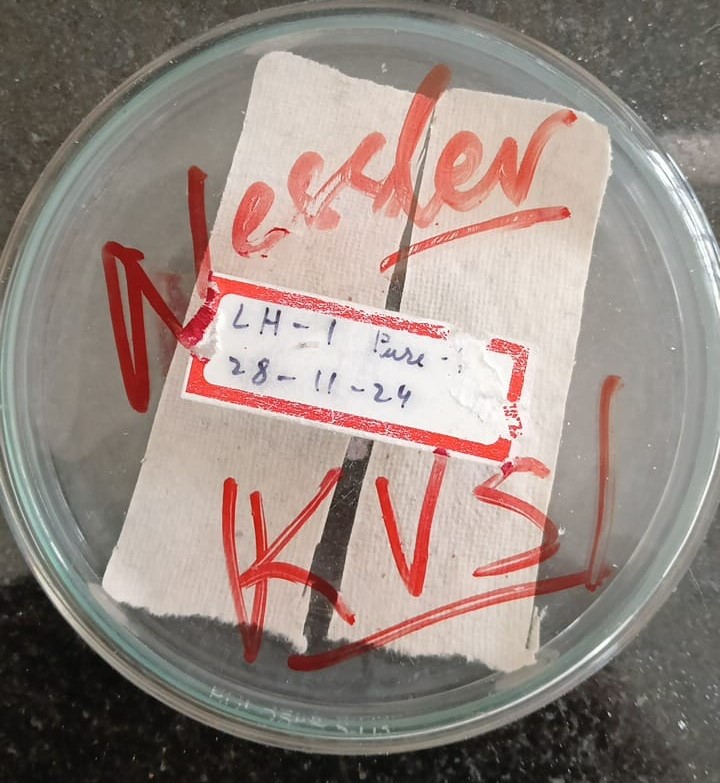 Nessler
LH-1 Pure
28-11-24
KVS